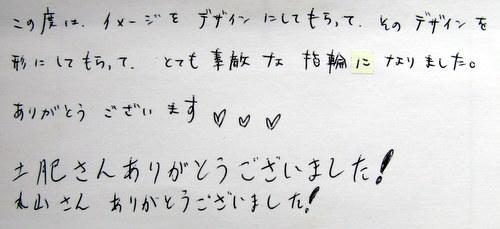 この度は、イメージを デザインにしてもらって、そのデザインを
形にしてもらって、とても素敵な 指輪に なりました。
ありがとう ございます♡♡♡
土肥さんありがとうございました!
丸山さん ありがとうございました!